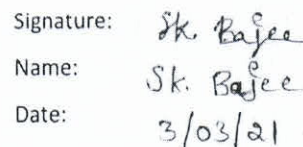 Signature: Sk. Bajee
Name: Sk. Bajee
Date: 3/03/21